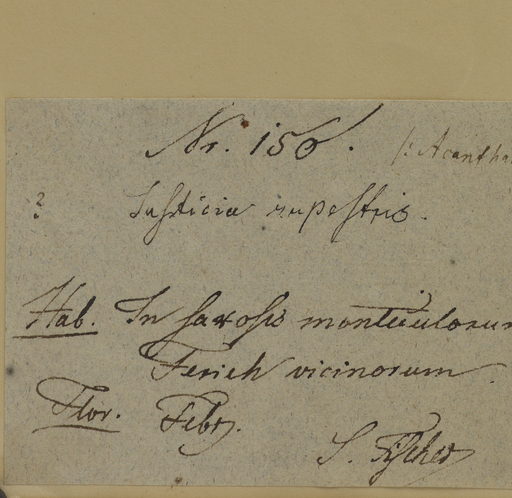 Nr. 156. /: Acantha
? Justicia rupestris.
Hab. In saxosis monticulorum
Ferich vicinorum.
Flor. Febr.
S. Fischer